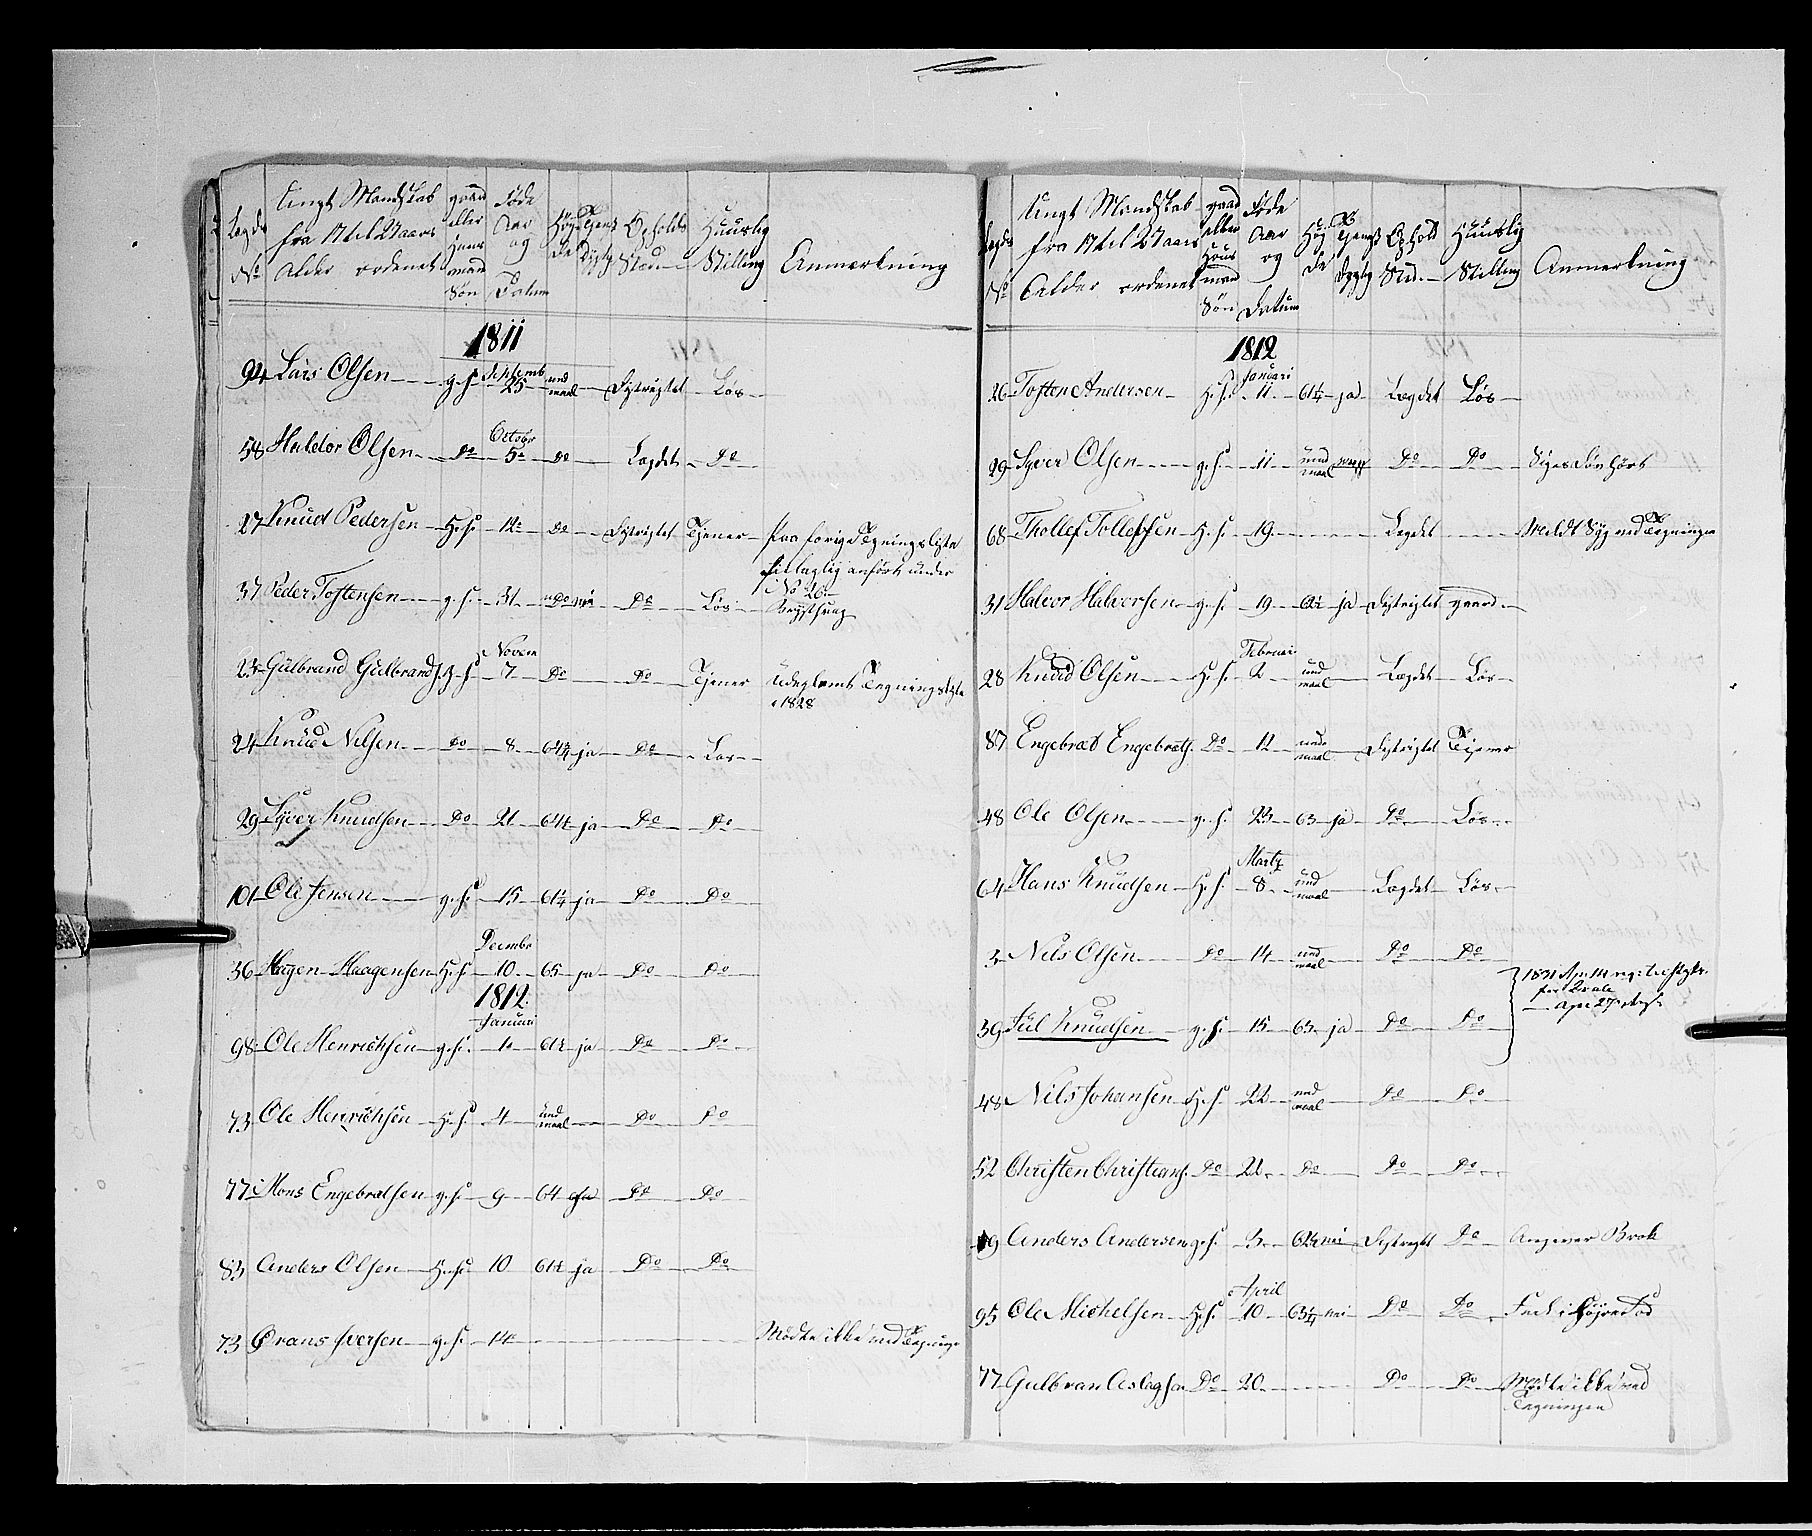 Lægds No | Ungt Mandskab fra 17 til 27 aars Alder ordenet | gaard eller Huus mand Søn | Føde Aar og Datum | Høyde | Tjenst Dygtig | Opholds Sted | Huuslig Stilling | Anmerkning
1811
94 Lars Olsen g.S. Septemb 25 und maal Distrigtet Løs
58 Haldor Olsen Do Octobr 5 Do Lægdet Do
27 Knud Pedersen H.S. 12 Do Distrigtet Tjener paa forige Tegningsliste feilagtig anført under No 26
37 Peder Tostensen g.S. 31 Do nei Do Løs Brystsvag
23 Gulbrand Gulbrands. H.S. Novem 7 Do Do Tjener Udeglemt Tegningsliste 1828
24 Knud Nilsen Do 8 64¼ ja Do Løs
29 Syver Knudsen Do 21 64¼ ja Do Do
101 Ole Jensen g.S. 15 61¼ ja Do Do
36 Hagen Haagensen H.S. Decembr 10 65 ja Do Do
1812
98 Ole Henrichsen g.S. Januari 1 61½ ja Do Do
73 Ole Henrichsen H.S. 4 und maal Do Do
77 Mons Engebretsen g.S. 9 64 ja Do Do
83 Anders Olsen H.S. 10 61½ ja Do Do
73 Iversen g.S. 14 Mødte ikke ved Tegninge
Lægds No | Ungt Mandskab fra 17 til 27 Aars Alder ordenet | gaard eller Huus mand Søn | Føde Aar og Datum | Høyde | Tjenst Dygtig | Ophold Sted | Huuslig Stilling | Anmerkning
1812
26 Tosten Andersen H.S. Januari 11 61¼ ja Lægdet Løs
29 Syver Olsen g.S. 11 und maal Do Do Siges Døvhørt
68 Thollef Tollefsen H.S. 19 Lægdet Meldt Syg ved Tegningen
31 Halvor Halvorsen g.S. 19 ja Distrigtet gaard
28 Knud Olsen H.S. Februari 2 und maal Lægdet Løs
87 Engebret Engebrets. Do 12 und maal Distrigtet Tjener
48 Ole Olsen g.S. 23 63 ja Do Løs
64 Hans Knudsen H.S. Martz 8 und maal Lægdet Løs
3 Nils Olsen Do 14 und maal Do Do
39 Jul Knudsen g.S. 15 63 ja Do Do 1831
48 Nils Johansen H.S. 22 und maal Do Do
52 Christen Christians. Do 21 Do Do Do
19 Anders Andersen g.S. 3 62¼ nei Distrigtet Do Angiver Brok
95 Ole Michelsen H.S. April 10 63¼ nei Do Do Feil i Høire Fod
77 Gulbran Aslagsen Do 20 Do Do Mødte ikke ved Tegningen